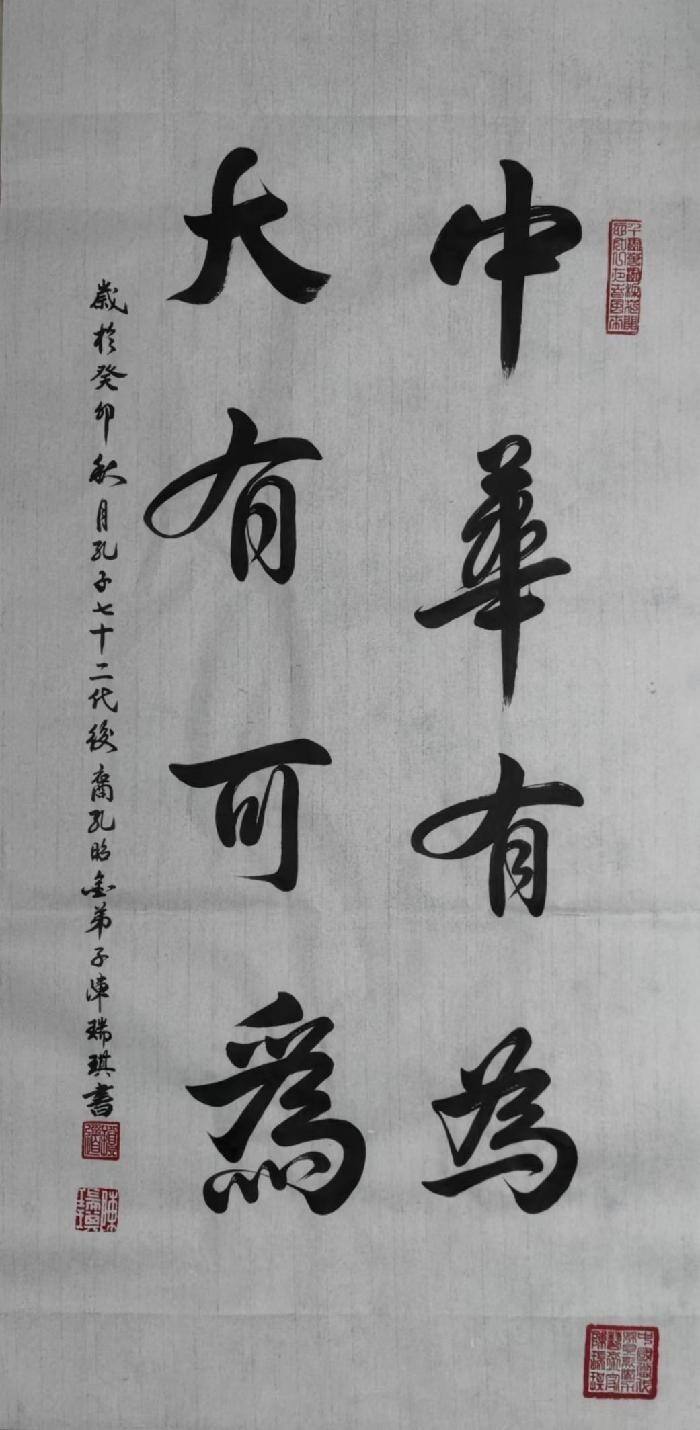 中華有为
大有可爲
歲於癸卯秋月孔子七十二代後裔孔昭金弟子陳瑞琪書